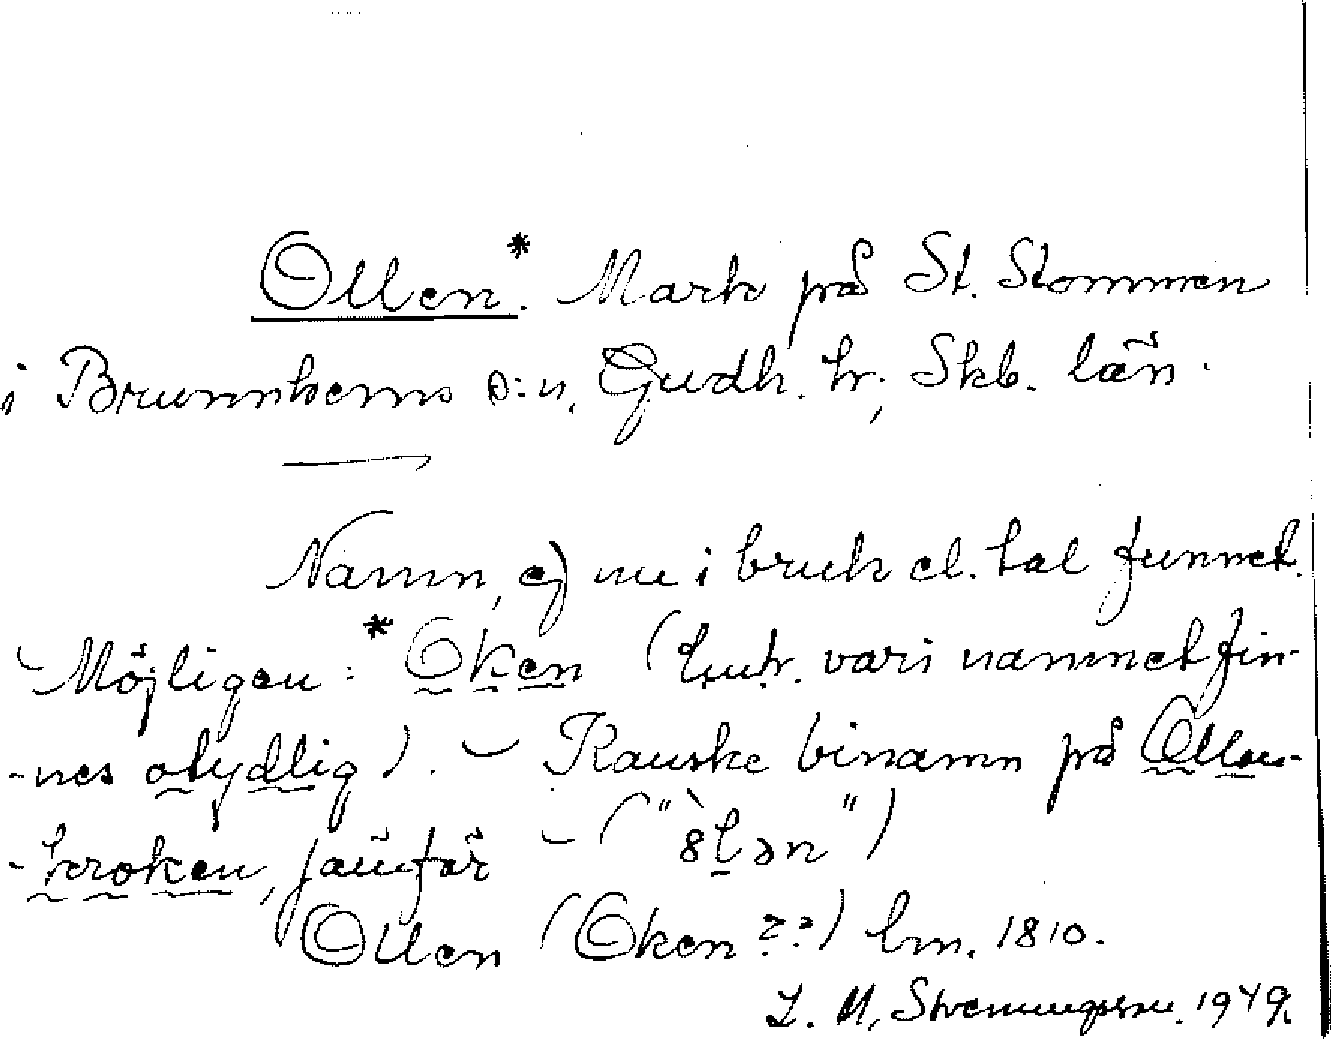 Ollen.* Mark på St. Stommen
i Brunnhems s:n, Gudh. hr; Skb. län.
Namn, ej nu i bruk el. tal funnet.
- Möjligen: *Oken ( vari namnet fin-
-nes otydlig). - Kanske binamn på Ollen-
-kroken, jämför - ("ȣ̀lən")
Ollen (Oken ??) lm. 1810.
L. M. Svenungsson. 1949.